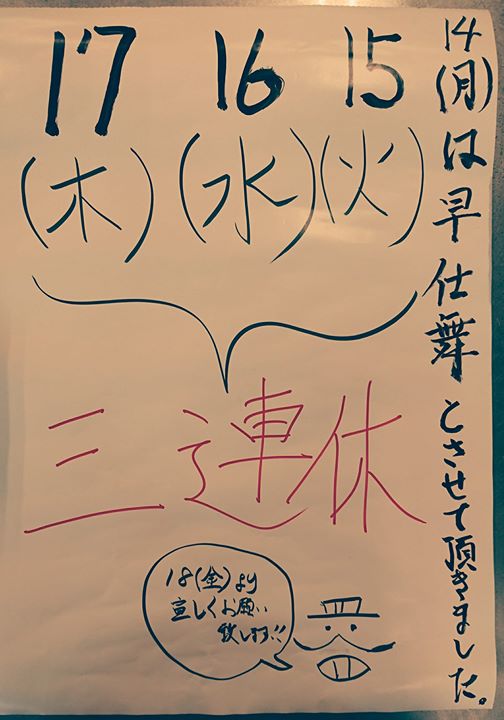 14(月)は早仕舞とさせて頂きました。
15 16 17
(火) (水) (木)
三連休
18(金)より
宜しくお願い
致します!!